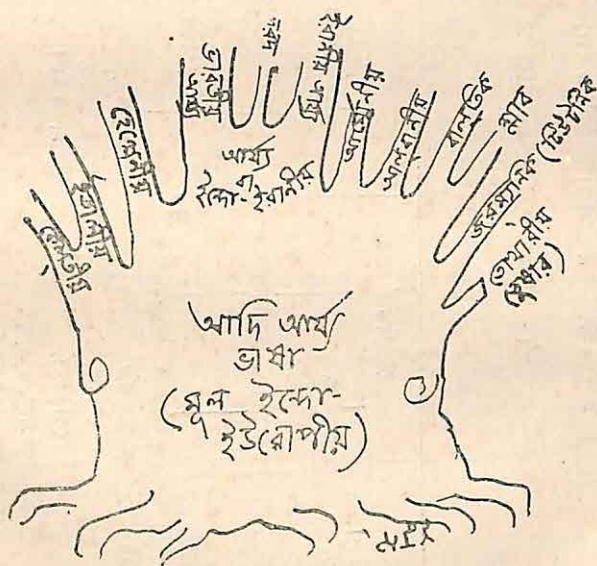 কেলতীয়
ইতালীয়
হেলেনীয়
ভারতীয় আর্য্য
দরদ
ইরানীয় আর্য্য
আর্য্য
বা
ইন্দো-ইরানীয়
আর্ম্মেনীয়
আলবানীয়
বালতিক
স্লাব
জরম্যানিক (টিউটনিক)
তোখারীয়
(তুখার)
আদি আর্য্য
ভাষা
(মূল ইন্দো-
ইউরোপীয়)